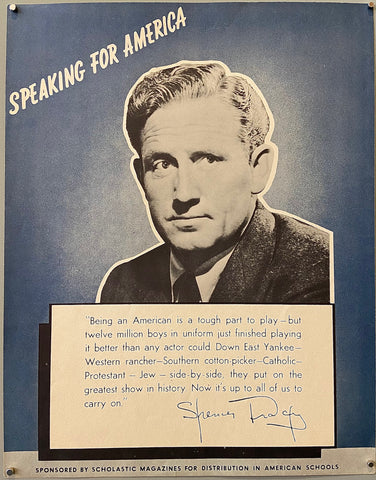 SPEAKING FOR AMERICA
"Being an American is a tough part to play—but
twelve million boys in uniform just finished playing
it better than any actor could. Down East Yankee—
Western rancher—Southern cotton-picker—Catholic—
Protestant — Jew — side-by-side, they put on the
greatest show in history. Now it's up to all of us to
carry on."
Spencer Tracy
SPONSORED BY SCHOLASTIC MAGAZINES FOR DISTRIBUTION IN AMERICAN SCHOOLS